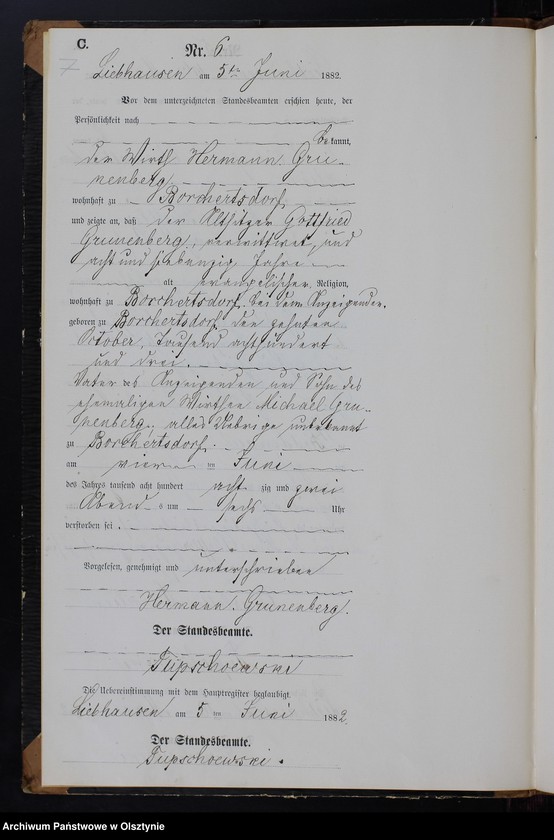 C.
Nr. 6
7
Liebhausen am 5ten Juni 1882.
Vor dem unterzeichneten Standesbeamten erschien heute, der
Persönlichkeit nach
bekannt,
der Wirth Hermann Gru-
nenberg
wohnhaft zu Borchertsdorf
und zeigte an, daß der Altsitzer Gottfried
Grunenberg, verwittwet, und
acht und siebenzig Jahre
alt evangelischer Religion,
wohnhaft zu Borchertsdorf bei dem Anzeigenden.
geboren zu Borchertsdorf den zehnten
October, tausend achthundert
und drei.
Vater des Anzeigenden und Sohn des
ehemaligen Wirthen Michael Gru-
nenberg., alles Uebrige unbekannt
zu Borchertsdorf.
am vier ten Juni
des Jahres tausend acht hundert acht zig und zwei
Abends um sechs Uhr
verstorben sei.
Vorgelesen, genehmigt und unterschrieben
Hermann. Grunenberg.
Der Standesbeamte.
Tupschoewski
Die Uebereinstimmung mit dem Hauptregister beglaubigt.
Liebhausen am 5 ten Juni 1882.
Der Standesbeamte.
Tupschoewski.
Archiwum Państwowe w Olsztynie